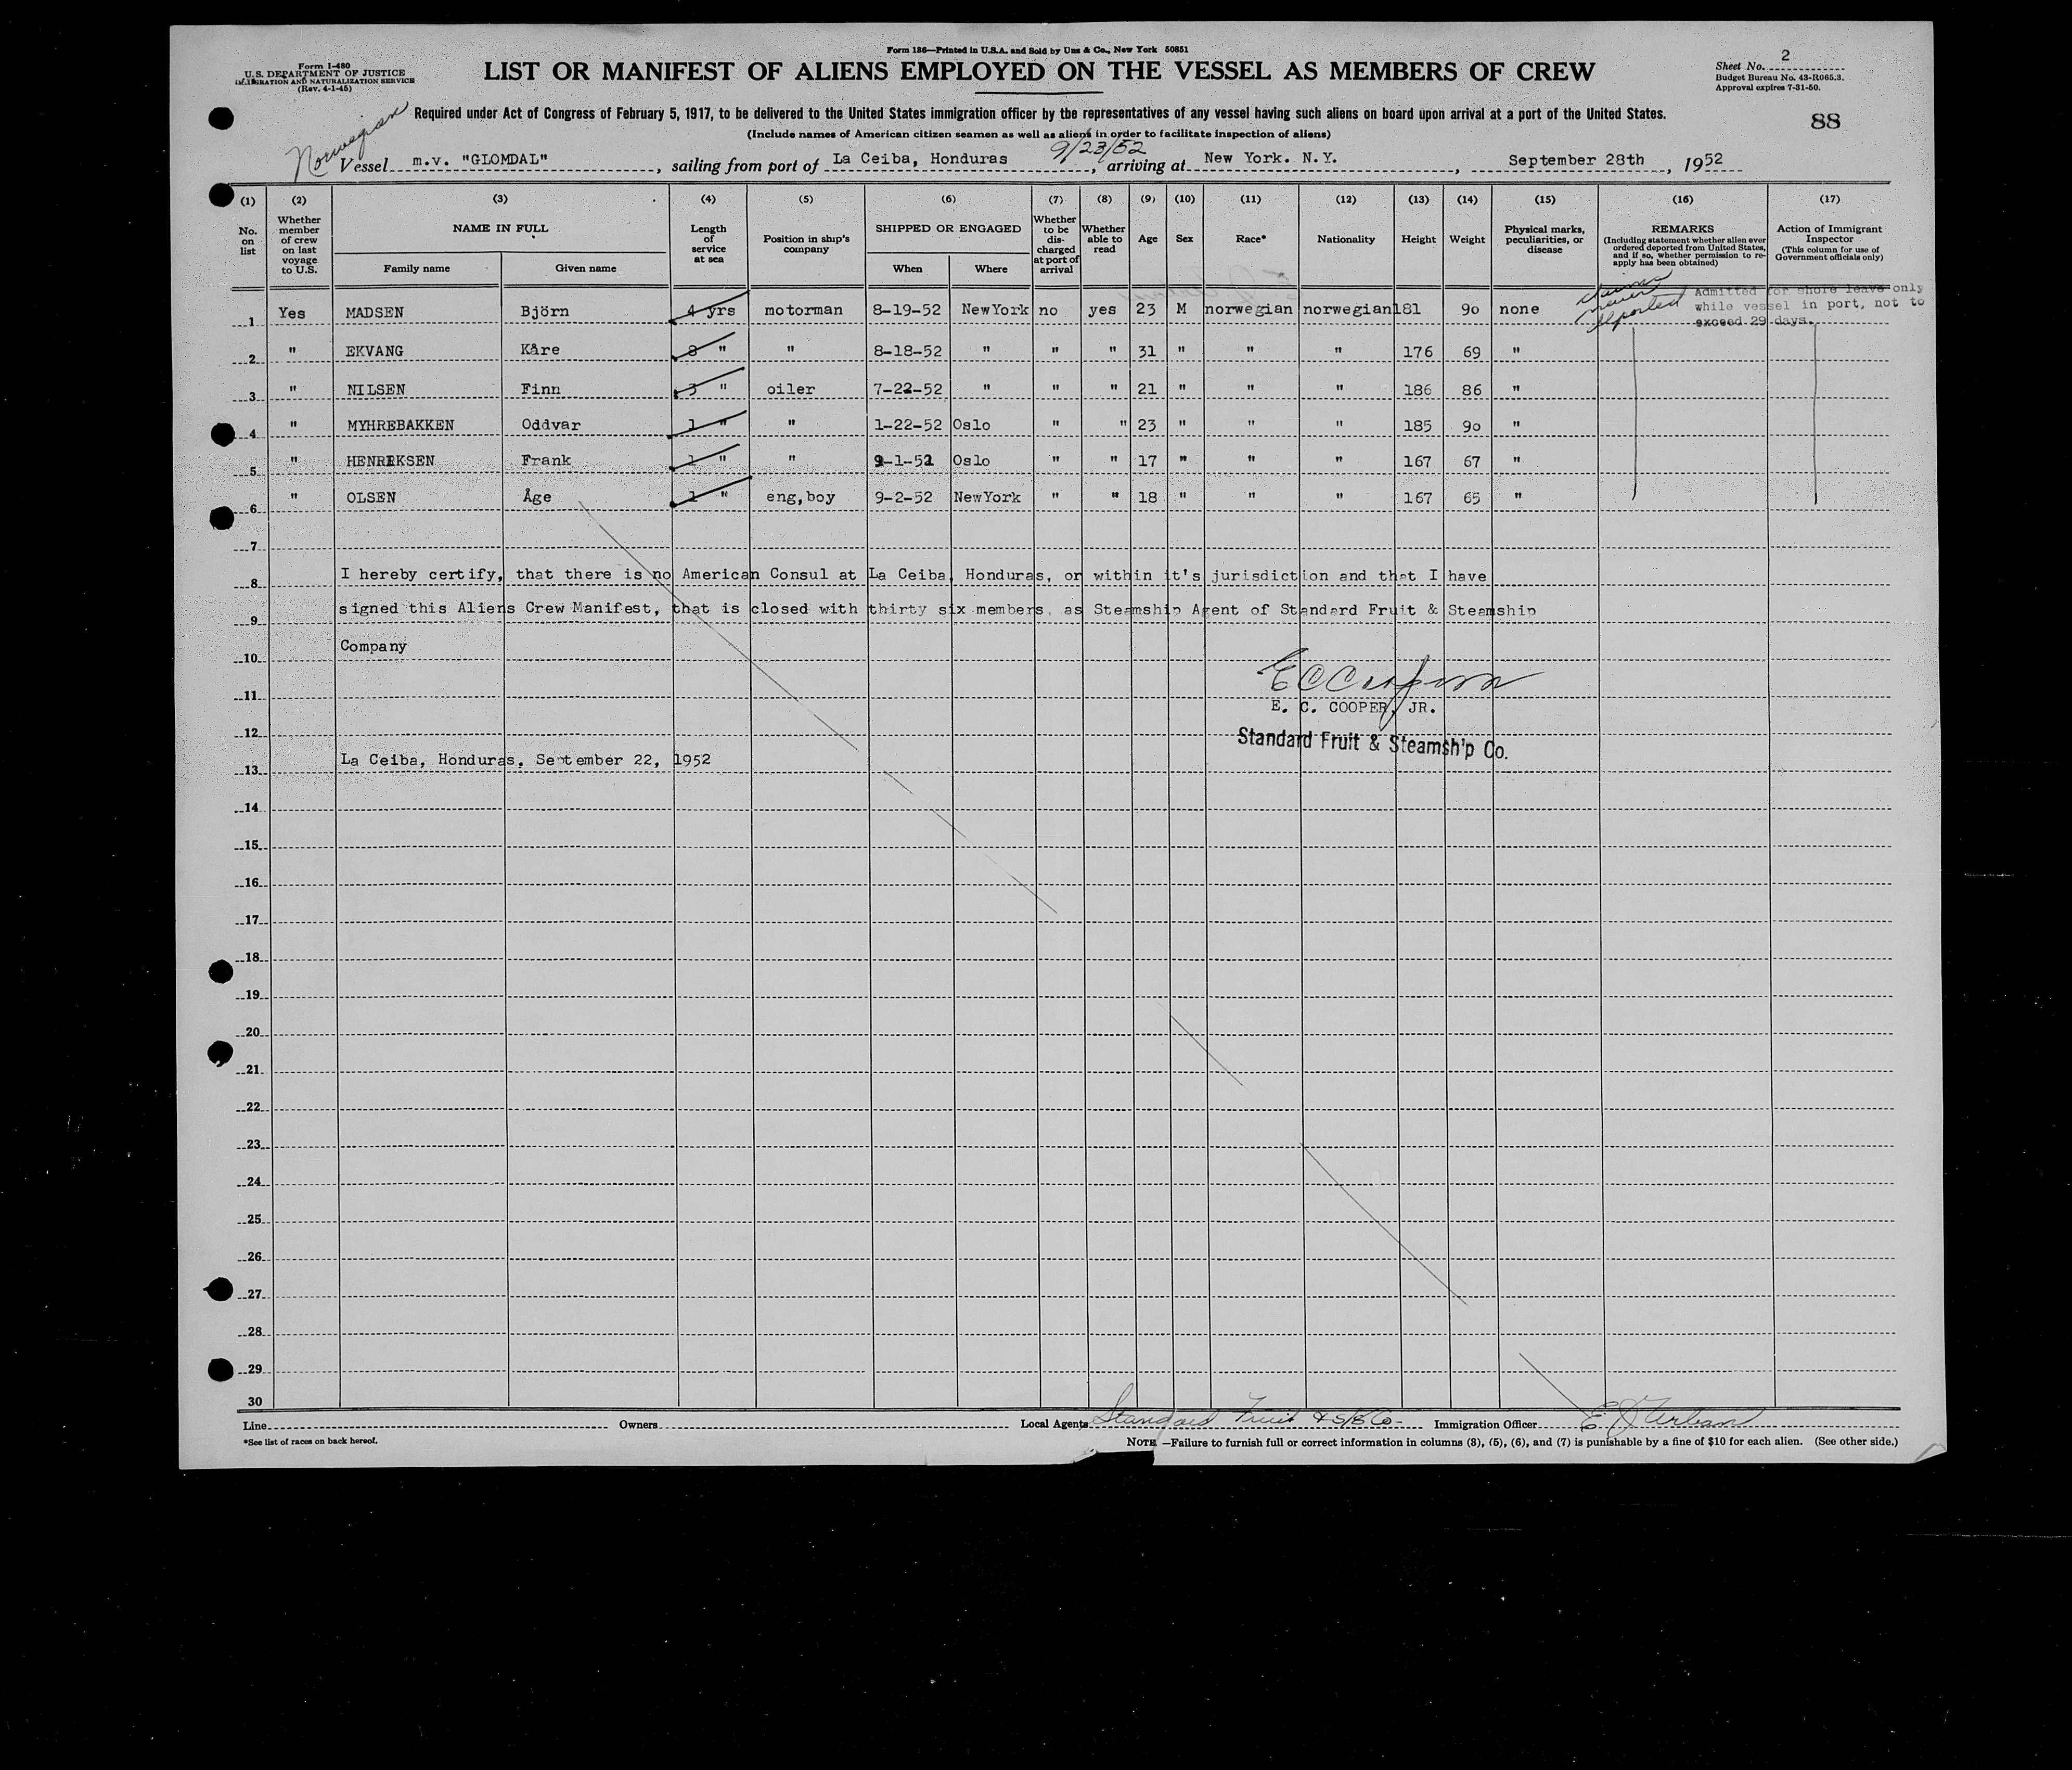 Form 186—Printed in U.S.A. and Sold by Unz & Co., New York 50851
Form I-480
U.S. DEPARTMENT OF JUSTICE
IMMIGRATION AND NATURALIZATION SERVICE
(Rev. 4-1-45)
LIST OR MANIFEST OF ALIENS EMPLOYED ON THE VESSEL AS MEMBERS OF CREW
Sheet No. 2
Budget Bureau No. 43-R065.3.
Approval expires 7-31-50.
Required under Act of Congress of February 5, 1917, to be delivered to the United States immigration officer by the representatives of any vessel having such aliens on board upon arrival at a port of the United States.
88
(Include names of American citizen seamen as well as aliens in order to facilitate inspection of aliens)
Norwegian
9/23/52
Vessel m.v. "GLOMDAL", sailing from port of La Ceiba, Honduras, arriving at New York. N.Y., September 28th, 1952
(1) (2) (3) (4) (5) (6) (7) (8) (9) (10) (11) (12) (13) (14) (15) (16) (17)
No. on list
Whether member of crew on last voyage to U.S.
NAME IN FULL
Family name
Given name
Length of service at sea
Position in ship's company
SHIPPED OR ENGAGED
When
Where
Whether to be discharged at port of arrival
Whether able to read
Age
Sex
Race*
Nationality
Height
Weight
Physical marks, peculiarities, or disease
REMARKS
(Including statement whether alien ever ordered deported from United States, and if so, whether permission to re-apply has been obtained)
Action of Immigrant Inspector
(This column for use of Government officials only)
1 Yes MADSEN Björn 4 yrs motorman 8-19-52 NewYork no yes 23 M norwegian norwegian 181 90 none
never deported
Admitted for shore leave only
while vessel in port, not to
exceed 29 days.
2 " EKVANG Kåre 8 " " 8-18-52 " " " 31 " " " 176 69 "
3 " NILSEN Finn 3 " oiler 7-22-52 " " " 21 " " " 186 86 "
4 " MYHREBAKKEN Oddvar 1 " " 1-22-52 Oslo " " 23 " " " 185 90 "
5 " HENRIKSEN Frank 1 " " 9-1-52 Oslo " " 17 " " " 167 67 "
6 " OLSEN Åge 1 " eng,boy 9-2-52 NewYork " " 18 " " " 167 65 "
7
8 I hereby certify, that there is no American Consul at La Ceiba, Honduras, or within it's jurisdiction and that I have
9 signed this Aliens Crew Manifest, that is closed with thirty six members, as Steamship Agent of Standard Fruit & Steamship
10 Company
11
E. C. COOPER, JR.
12
Standard Fruit & Steamship Co.
13 La Ceiba, Honduras, September 22, 1952
14
15
16
17
18
19
20
21
22
23
24
25
26
27
28
29
30
Line Owners Local Agents Standard Fruit & S/S Co- Immigration Officer E J Urban
*See list of races on back hereof.
NOTE —Failure to furnish full or correct information in columns (3), (5), (6), and (7) is punishable by a fine of $10 for each alien. (See other side.)